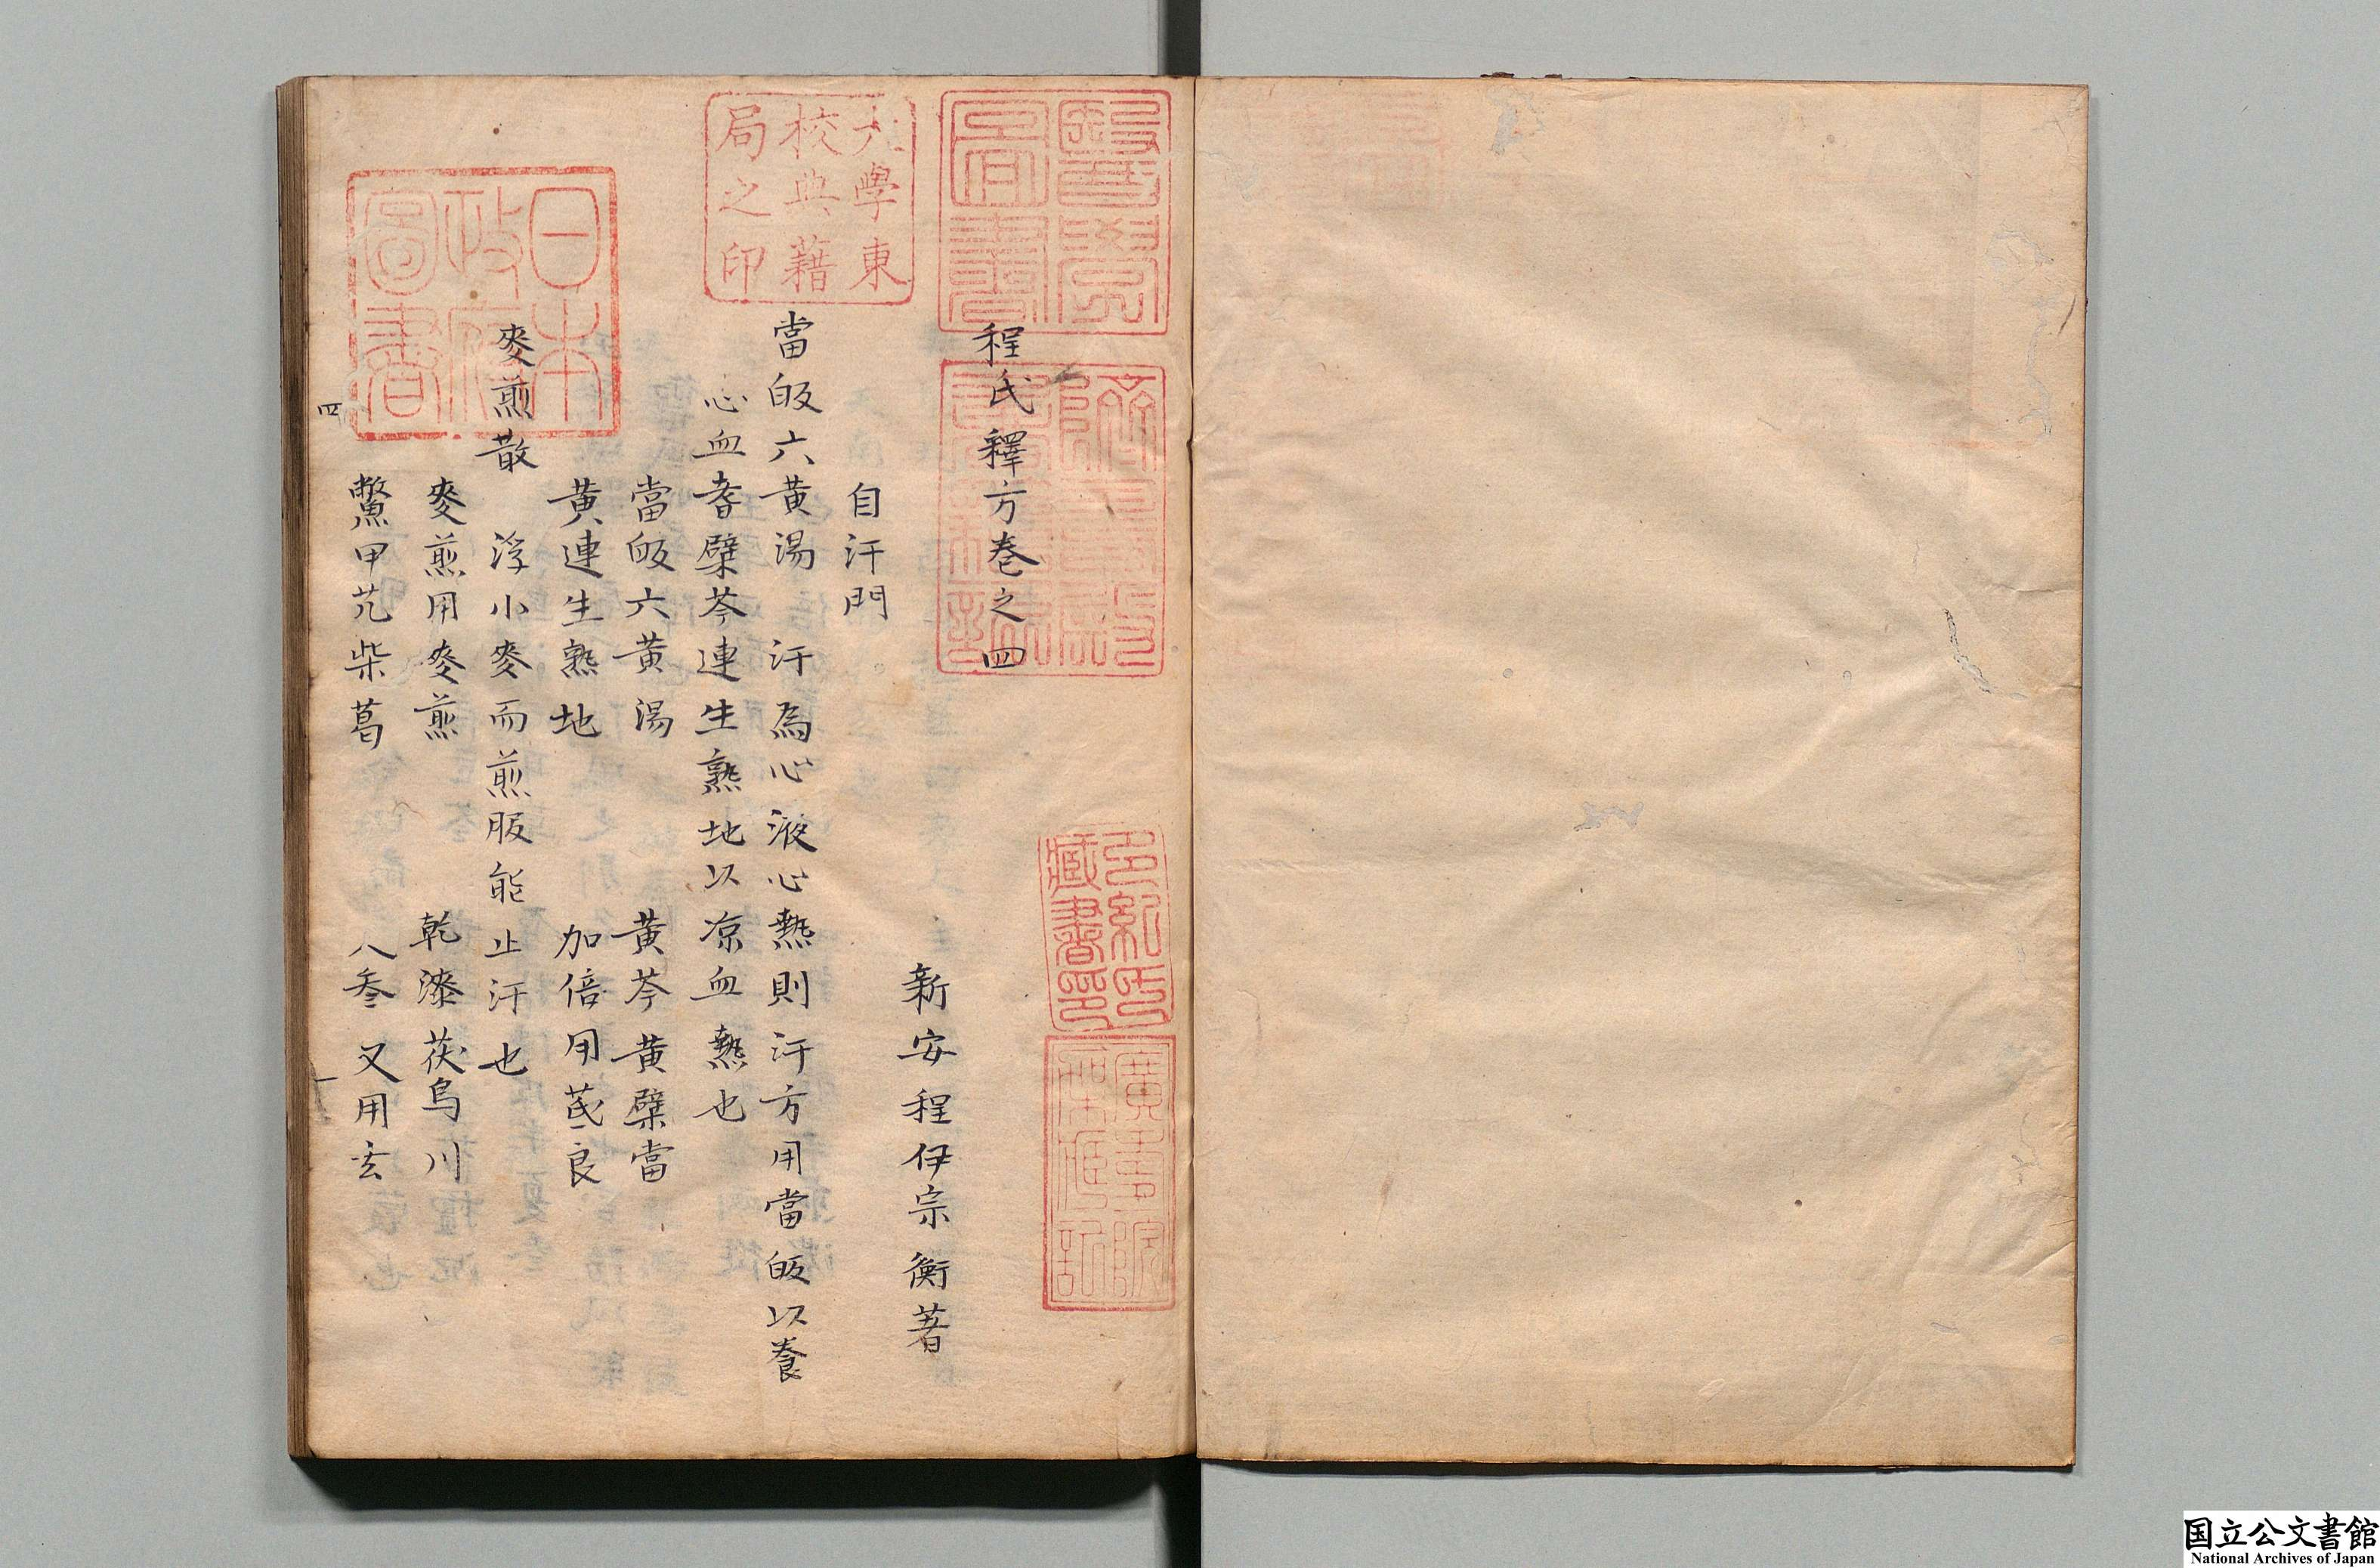 程氏釋方卷之四
新安程伊宗衡著
自汗門
當皈六黄湯　汗爲心液心熱則汗方用當皈以養
心血耆檗芩連生熟地以凉血熱也
當皈六黄湯　黄芩黄檗當
黄連生熟地　加倍用芪良
麥煎散　浮小麥而煎服能止汗也
麥煎用麥煎　乾漆茯烏川
鱉甲艽柴葛　八叅又用玄
四
一
醫學圖書
躋壽殿書籍記
多紀氏藏書印
廣壽院架藏記
大學東校典藉局之印
日本政府圖書
国立公文書館
National Archives of Japan